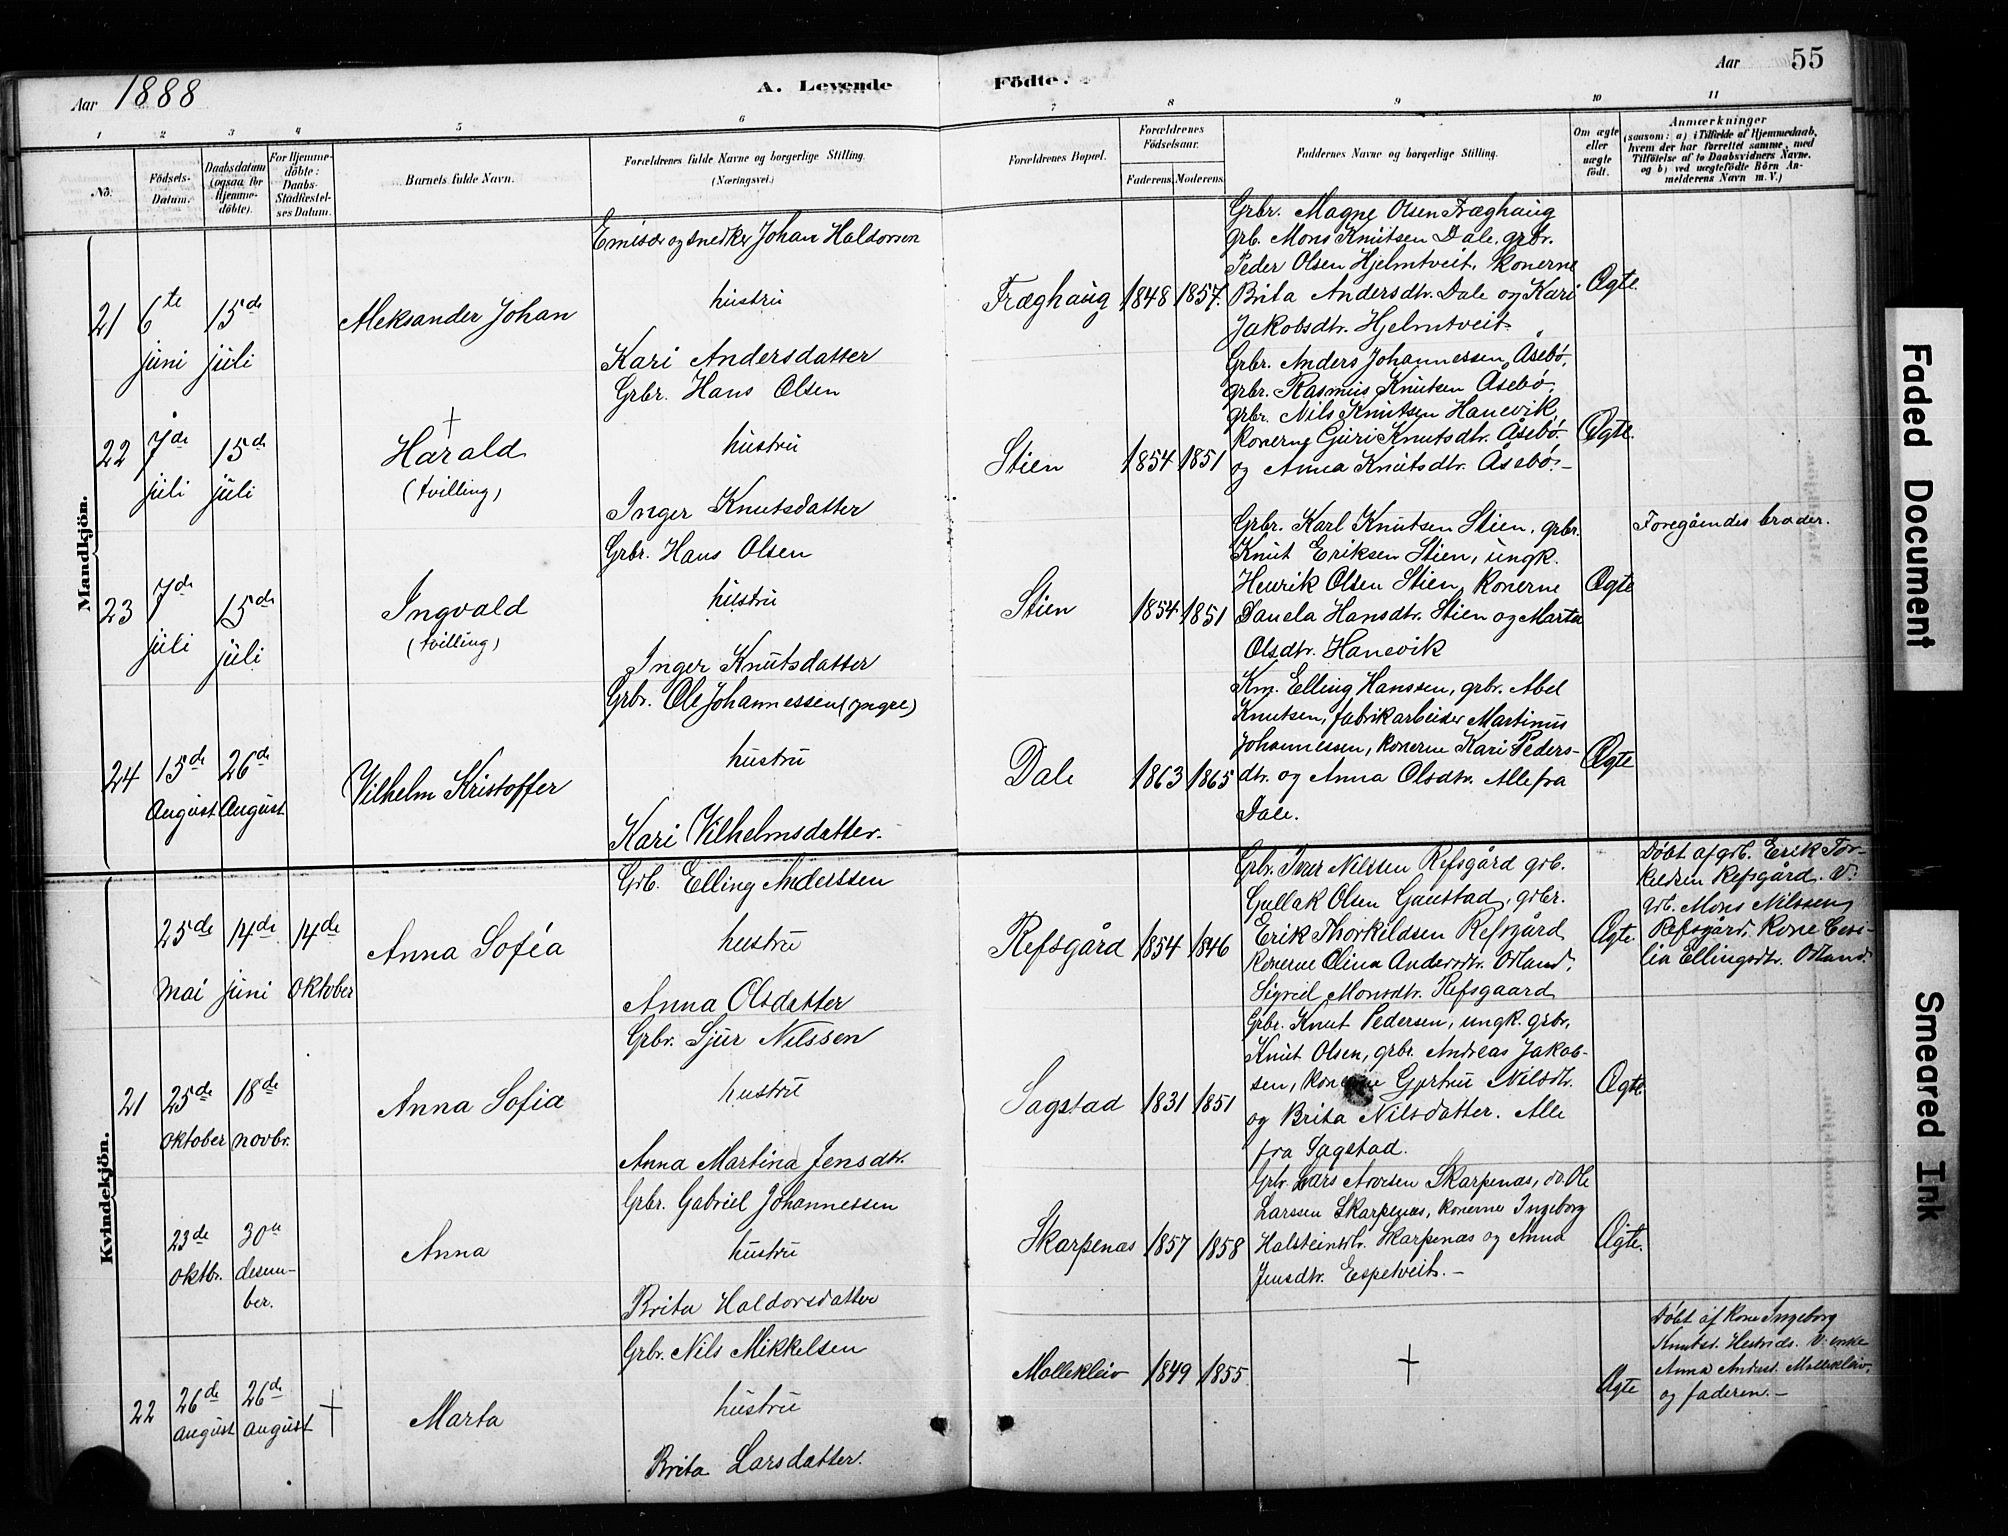 Aar 1888
A. Levende
Födte.
Aar 55
1 2 3 4 5 6 7 8 9 10 11
No.
Födsels-Datum.
Daabsdatum (ogsaa for Hjemmedöbte).
For Hjemmedöbte: Daabs-Stadfæstelses Datum.
Barnets fulde Navn.
Forældrenes fulde Navne og borgerlige Stilling.
(Næringsvei.)
Forældrenes Bopæl.
Forældrenes Födselsaar.
Faderens. Moderens.
Faddernes Navne og borgerlige Stilling.
Om ægte eller uægte födt.
Anmærkninger
(saasom: a) i Tilfælde af Hjemmedaab, hvem der har forrettet samme, med Tilföielse af to Daabsvidners Navne, og b) ved uægtefödte Börn Anmelderens Navn m. V.)
Mandkjön.
21
6te juni
15de juli
Aleksander Johan
Emisær og snedker Johan Haldorsen
hustru
Kari Andersdatter
Fræghaug
1848 1857.
Grbr. Magne Olsen Fræghaug
grb. Mons Knutsen Dale, grbr.
Peder Olsen Hjelmtveit, konerne
Brita Andersdtr. Dale og Kari
Jakobsdtr. Hjelmtveit.
Ægte.
22
7de juli
15de juli
†
Harald
(tvilling)
Grbr. Hans Olsen
hustru
Inger Knutsdatter
Stien
1854 1851
Grbr. Anders Johannessen Åsebø,
grbr. Rasmus Knutsen Åsebø,
grbr. Nils Knutsen Hanevik,
konerne Guri Knutsdtr. Åsebø
og Anna Knutsdtr. Åsebø.-
Ægte.
23
7de juli
15de juli
Ingvald
(tvilling)
Grbr. Hans Olsen
hustru
Inger Knutsdatter
Stien
1854 1851
Grbr. Karl Knutsen Stien, grbr.
Knut Eriksen Stien, ungk.
Henrik Olsen Stien, konerne
Daniela Hansdtr. Stien og Marta
Olsdtr. Hanevik
Ægte
Foregåendes broder.
24
15de August
26de August
Vilhelm Kristoffer
Grbr. Ole Johannessen (yngre)
hustru
Kari Vilhelmsdatter.
Dale
1863 1865
Km. Elling Hanssen, grbr. Abel
Knutsen, fabrikarbeider Martinus
Johannessen, konerne Kari Peders-
dtr. og Anna Olsdtr. Alle fra
Dale.
Ægte
Kvindekjön.
25de mai
14de juni
14de oktober
Anna Sofia
Grb. Elling Anderssen
hustru
Anna Olsdatter
Refsgård
1854 1846
Grbr. Ivar Nilssen Refsgård grb.
Gullak Olsen Gaustad, grbr.
Erik Thorkildsen Refsgård
konerne Olina Andersdtr. Odland,
Sigrid Monsdtr. Refsgaard
Ægte
Døbt af grb. Erik Tor-
kildsen Refsgård. V.
grb. Mons Nilssen
Refsgård, kone Cesi-
lia Ellingsdtr. Odland.
21
25de oktober
18de novbr.
Anna Sofia
Grbr. Sjur Nilssen
hustru
Anna Martina Jensdtr.
Sagstad
1831 1851
Grbr. Knut Pedersen, ungk. grbr.
Knut Olsen, grbr. Andreas Jakob-
sen, konerne Gjertru Nilsdtr.
og Brita Nilsdatter. Alle
fra Sagstad.
Ægte.
23de oktbr.
30te desem-
ber.
Anna
Grbr. Gabriel Johannessen
hustru
Brita Haldorsdatter
Skarpenæs
1857 1858
Grbr. Lars Skarpenæs, do. Ole
Larssen Skarpenæs, konerne Ingeborg
Halsteinsdtr. Skarpenæs og Anna
Jensdtr. Espetveit.-
Ægte.
22
26de august
26de august
†
Marta
Grbr. Nils Mikkelsen
hustru
Brita Larsdatter.
Mollekleiv
1849 1855
†
Ægte
Døbt af kone Ingeborg
Knutsd. V. enke
Anna Andersd. Mollekleiv,
og faderen.-
Faded Document
Smeared Ink